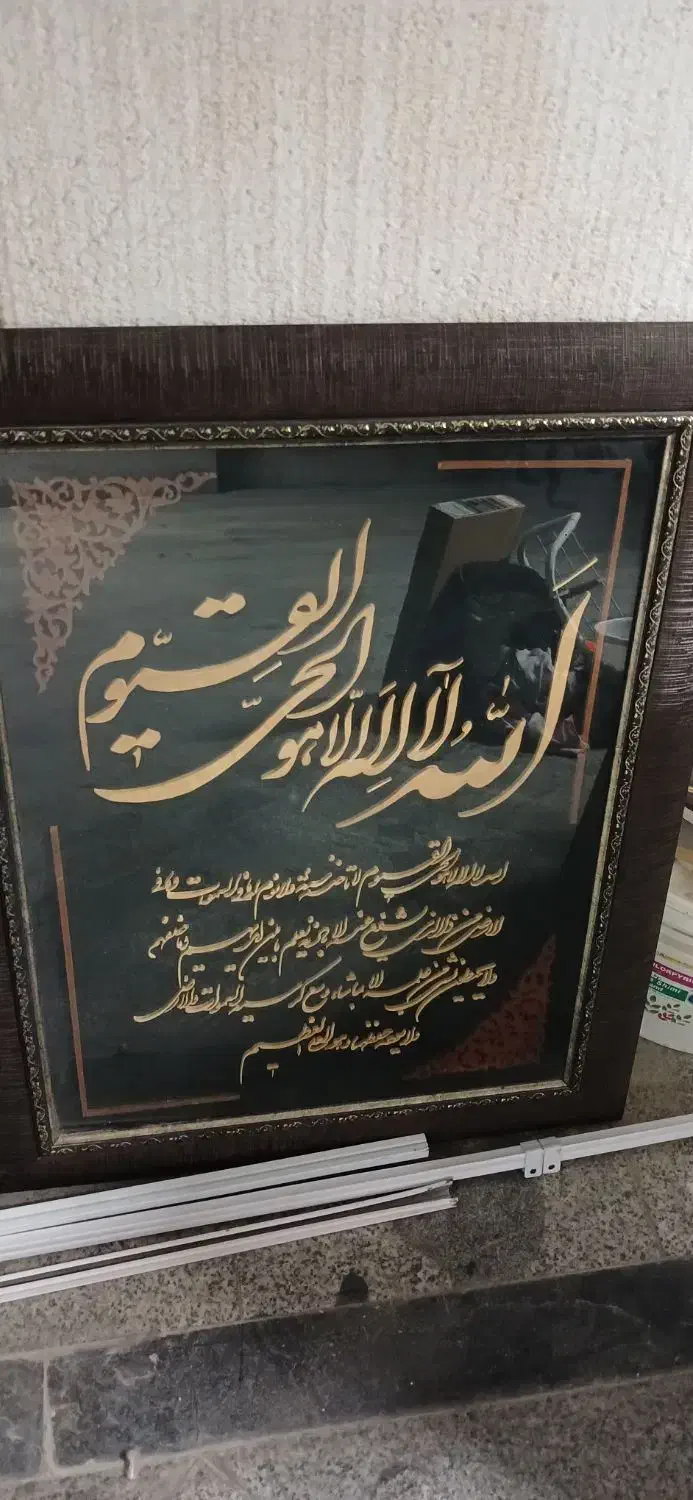 الله لا اله الا هو الحی القیوم
الله لا اله الا هو الحی القیوم لا تاخذه سنة ولا نوم له ما فی السموات وما فی
الارض من ذا الذی یشفع عنده الا باذنه یعلم ما بین ایدیهم وما خلفهم
ولا یحیطون بشیء من علمه الا بما شاء وسع کرسیه السموات والارض
ولا یوده حفظهما وهو العلی العظیم